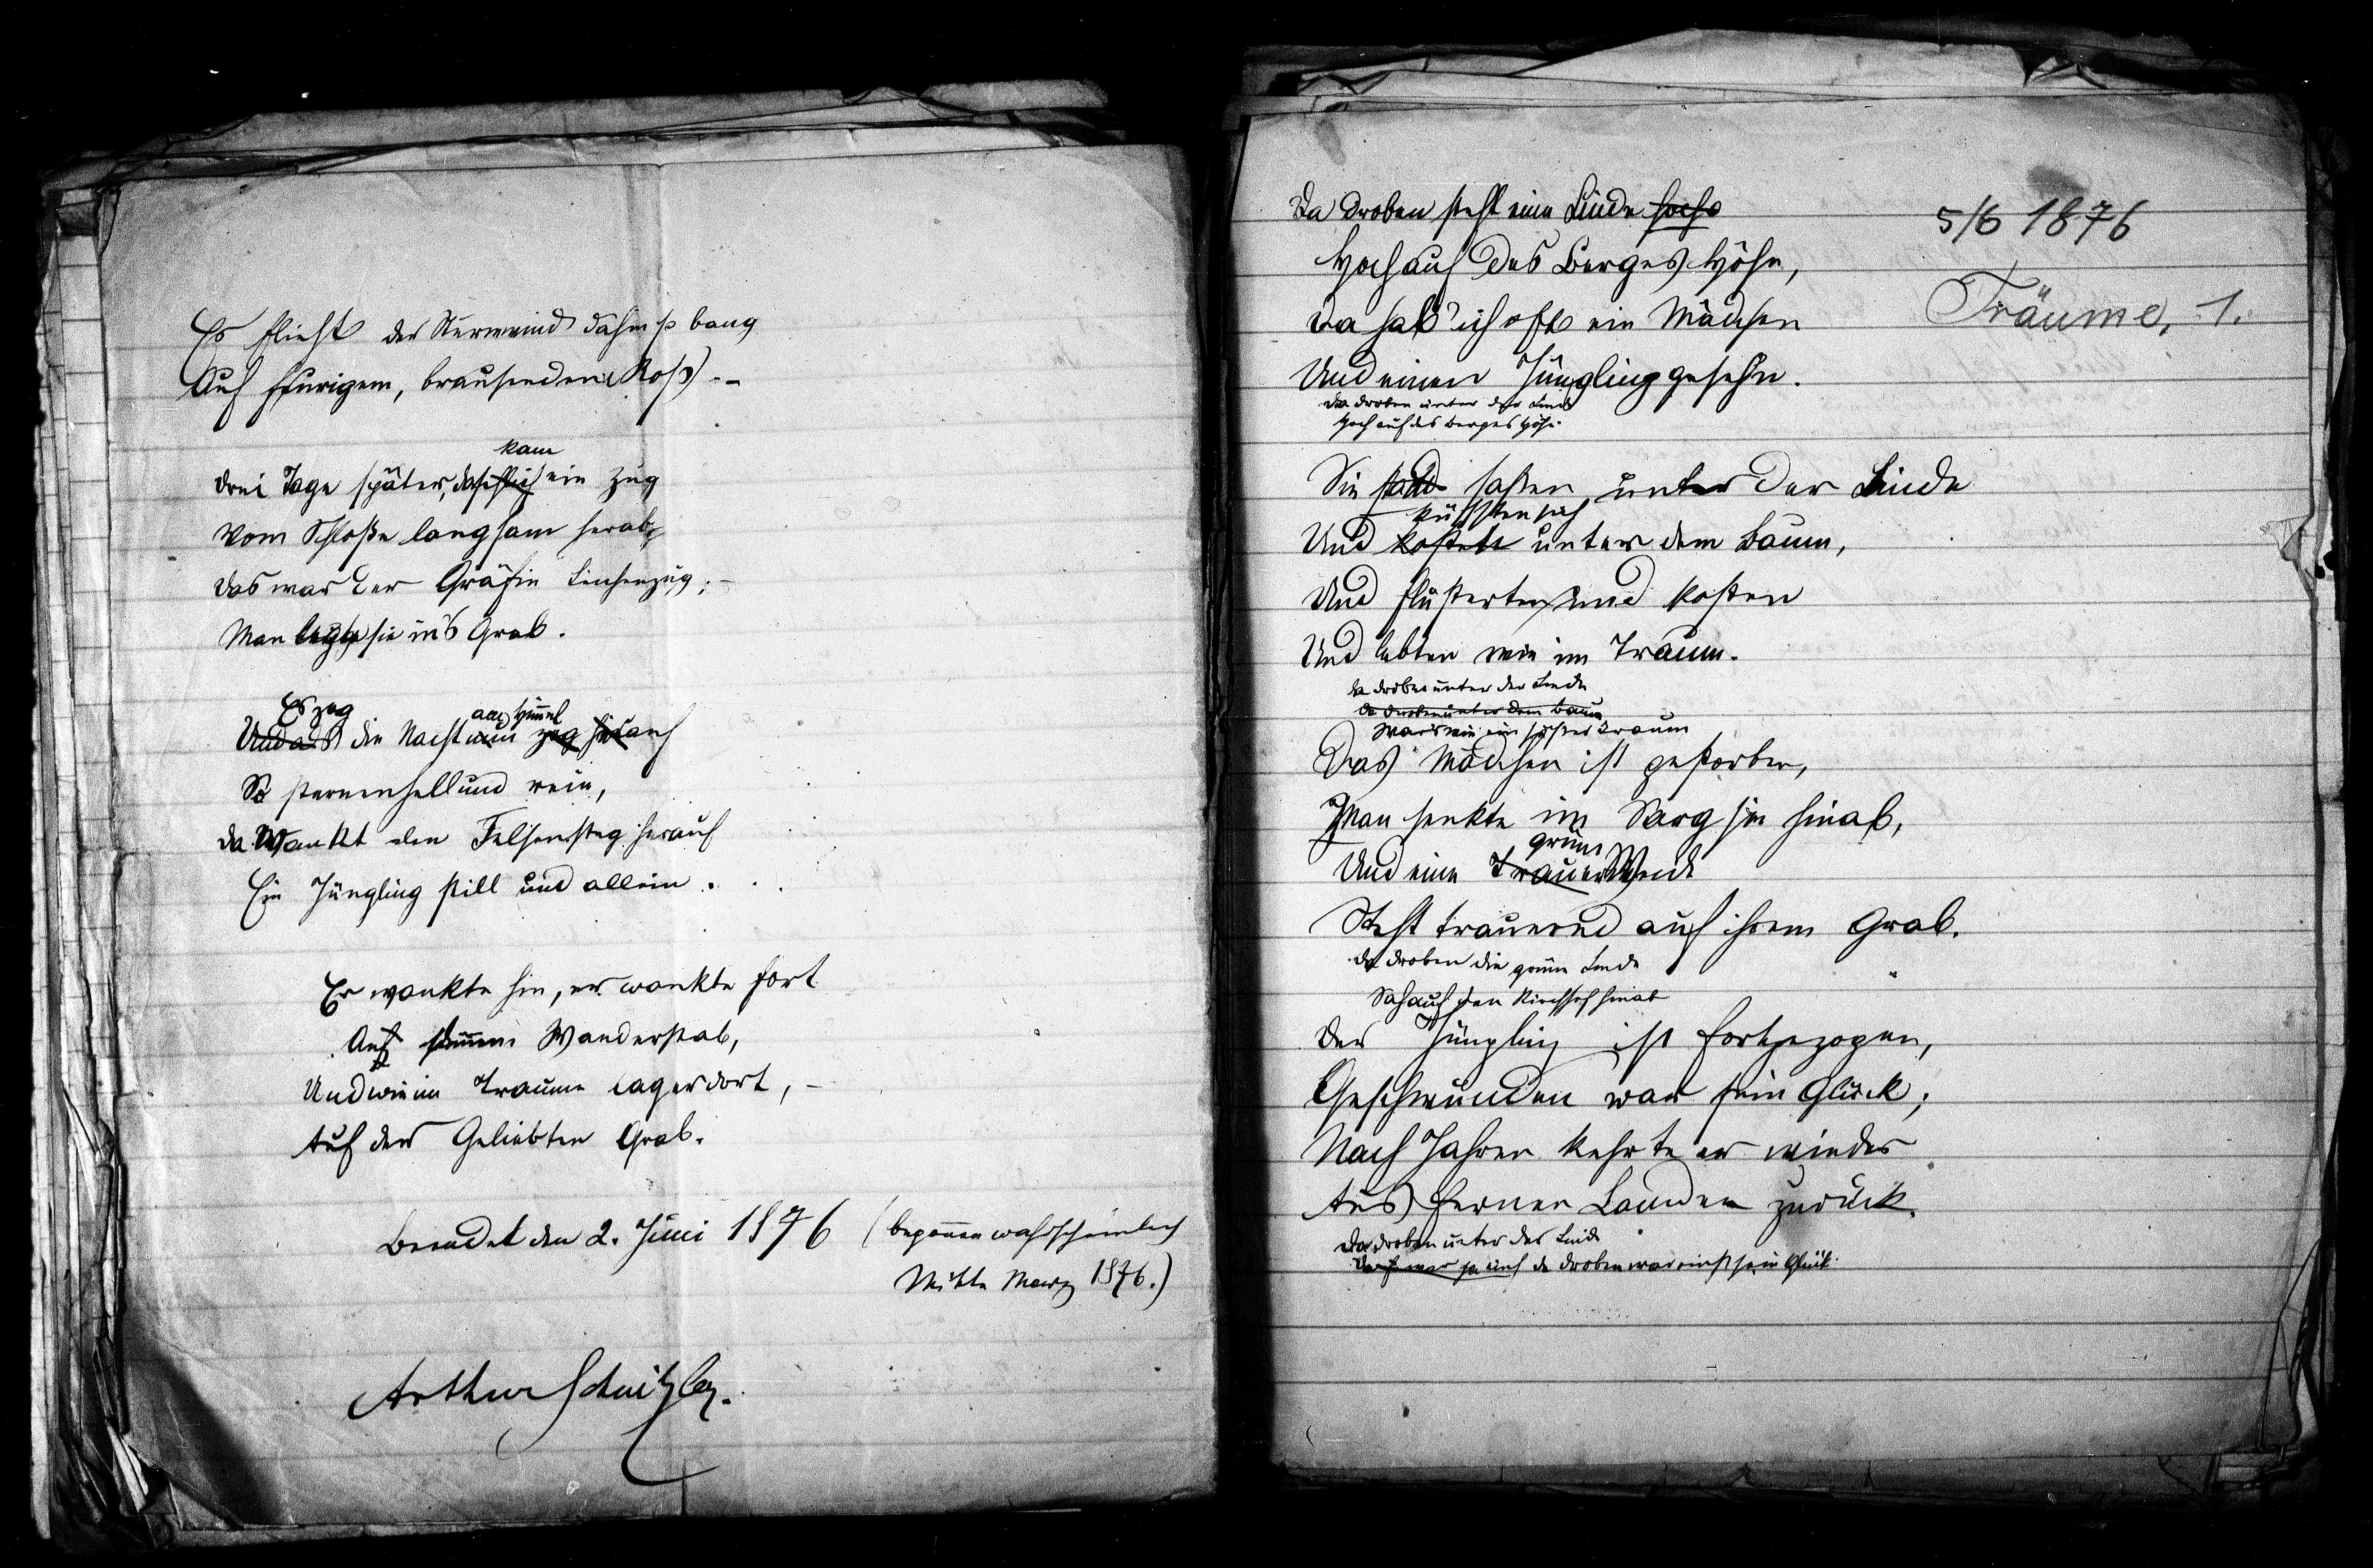 Es flieht der Sturmwind dahin so bang
Auf feurigem, brausendem Roß. –
kam
Drei Tage später, da schlich ein Zug
Vom Schloße langsam herab,
Das war der Gräfin Leichenzug; –
Man legte sie in's Grab.
Es zog am Himel
Und als die Nacht nun zog herauf
So sternenhell und rein,
Da wankt den Felsensteg herauf
Ein Jüngling still und allein . . .
Er wankte hin, er wankte fort
Auf seinem Wanderstab,
Und wie im Traume lag er dort, –
Auf der Geliebten Grab.
Beendet den 2. Juni 1876 (begonnen wahrscheinlich
Mitte März 1876.)
Arthur Schnitzler.
5/6 1876
Träume, 1.
Da droben steht eine Linde hoch
Hoch auf des Berges Höhn,
Da hab' ich oft ein Mädchen
Und einen Jüngling gesehn.
Da droben unter der Linde
Hoch auf des Berges Höhn
Sie saßen unter der Linde
küssten sich
Und kosten unter dem Baum,
Und flüsterten und kosten
Und lebten wie im Traum.
Da droben unter der Linde
Da droben unter dem Baum
War's wie ein süßer Traum
Das Mädchen ist gestorben,
Man senkte im Sarg sie hinab,
grüne
Und eine Trauer Weide
Steht trauernd auf ihrem Grab.
Da droben die grüne Linde
Sah auf den Kirchhof hinab
Der Jüngling ist fortgezogen,
Geschwunden war sein Glück;
Nach Jahren kehrte er wieder
Aus fernen Landen zurück.
Da droben unter der Linde
Da droben war einst sein Glück.